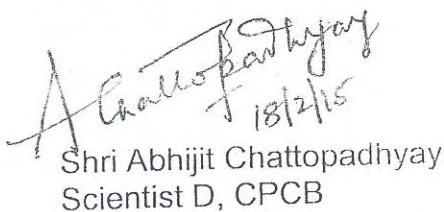 A Chattopadhyay
18/2/15
Shri Abhijit Chattopadhyay
Scientist D, CPCB